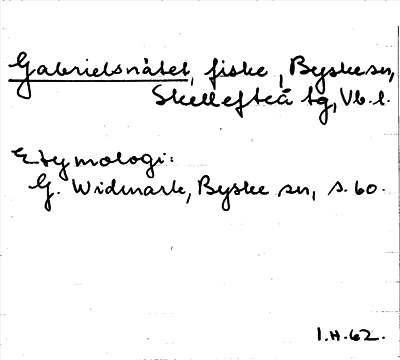 Gabrielsnåtet, fiske, Byske sn,
Skellefteå tg, Vb. l.
Etymologi:
G. Widmark, Byske sn, s. 60.
I.H. 62.